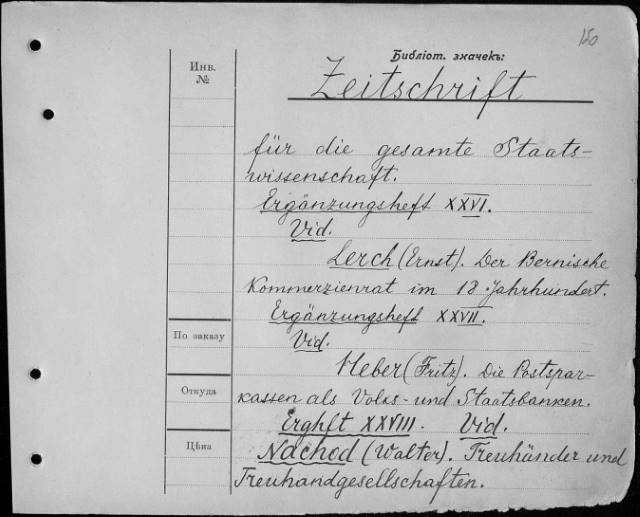 150
Инв.
№
Библіот. значекъ:
Zeitschrift
für die gesamte Staats-
wissenschaft.
Ergänzungsheft XXVI.
Vid.
Lerch (Ernst). Der Bernische
Kommerzienrat im 18. Jahrhundert.
Ergänzungsheft XXVII.
По заказу
Vid.
(Fritz). Die Postspar-
Откуда
kassen als Volks- und Staatsbanken.
Erghft XXVIII. Vid.
Цѣна
Nachod (Walter). Treuhänder und
Treuhandgesellschaften.